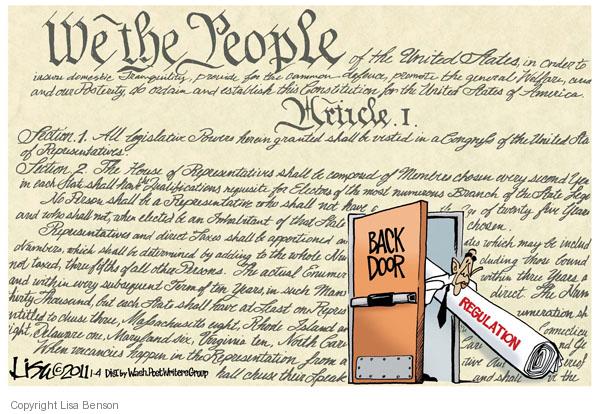 We the People
of the United States, in order to
insure domestic Tranquility, provide for the common defence, promote the general Welfare, and
and our Posterity do ordain and establish this Constitution for the United States of America.
Article. I.
Section. 1. All legislative Powers herein granted shall be vested in a Congress of the United Sta
of Representatives.
Section 2. The House of Representatives shall be composed of Members chosen every second Year
in each State shall have the Qualifications requisite for Electors of the most numerous Branch of the State Legis
No Person shall be a Representative who shall not have of twenty five Years
and who shall not, when elected be an Inhabitant of that State chosen.
Representatives and direct Taxes shall be apportioned an ates which may be includ
Numbers, which shall be determined by adding to the whole Num cluding those bound
not taxed, three fifths of all other Persons. The actual Enumer within three Years a
and within every subsequent Term of ten Years, in such Mann direct. The Num
thirty Thousand, but each State shall have at Least one Repres umeration sh
entitled to chuse three, Massachusetts eight, Rhode Island an Connecticu
ight, Delaware one, Maryland six, Virginia ten, North Car
When vacancies happen in the Representation from a
hall chuse their Speak and shall
BACK
DOOR
REGULATION
Lisa ©2011 1-4 Dist. by Wash. Post Writers Group
Copyright Lisa Benson